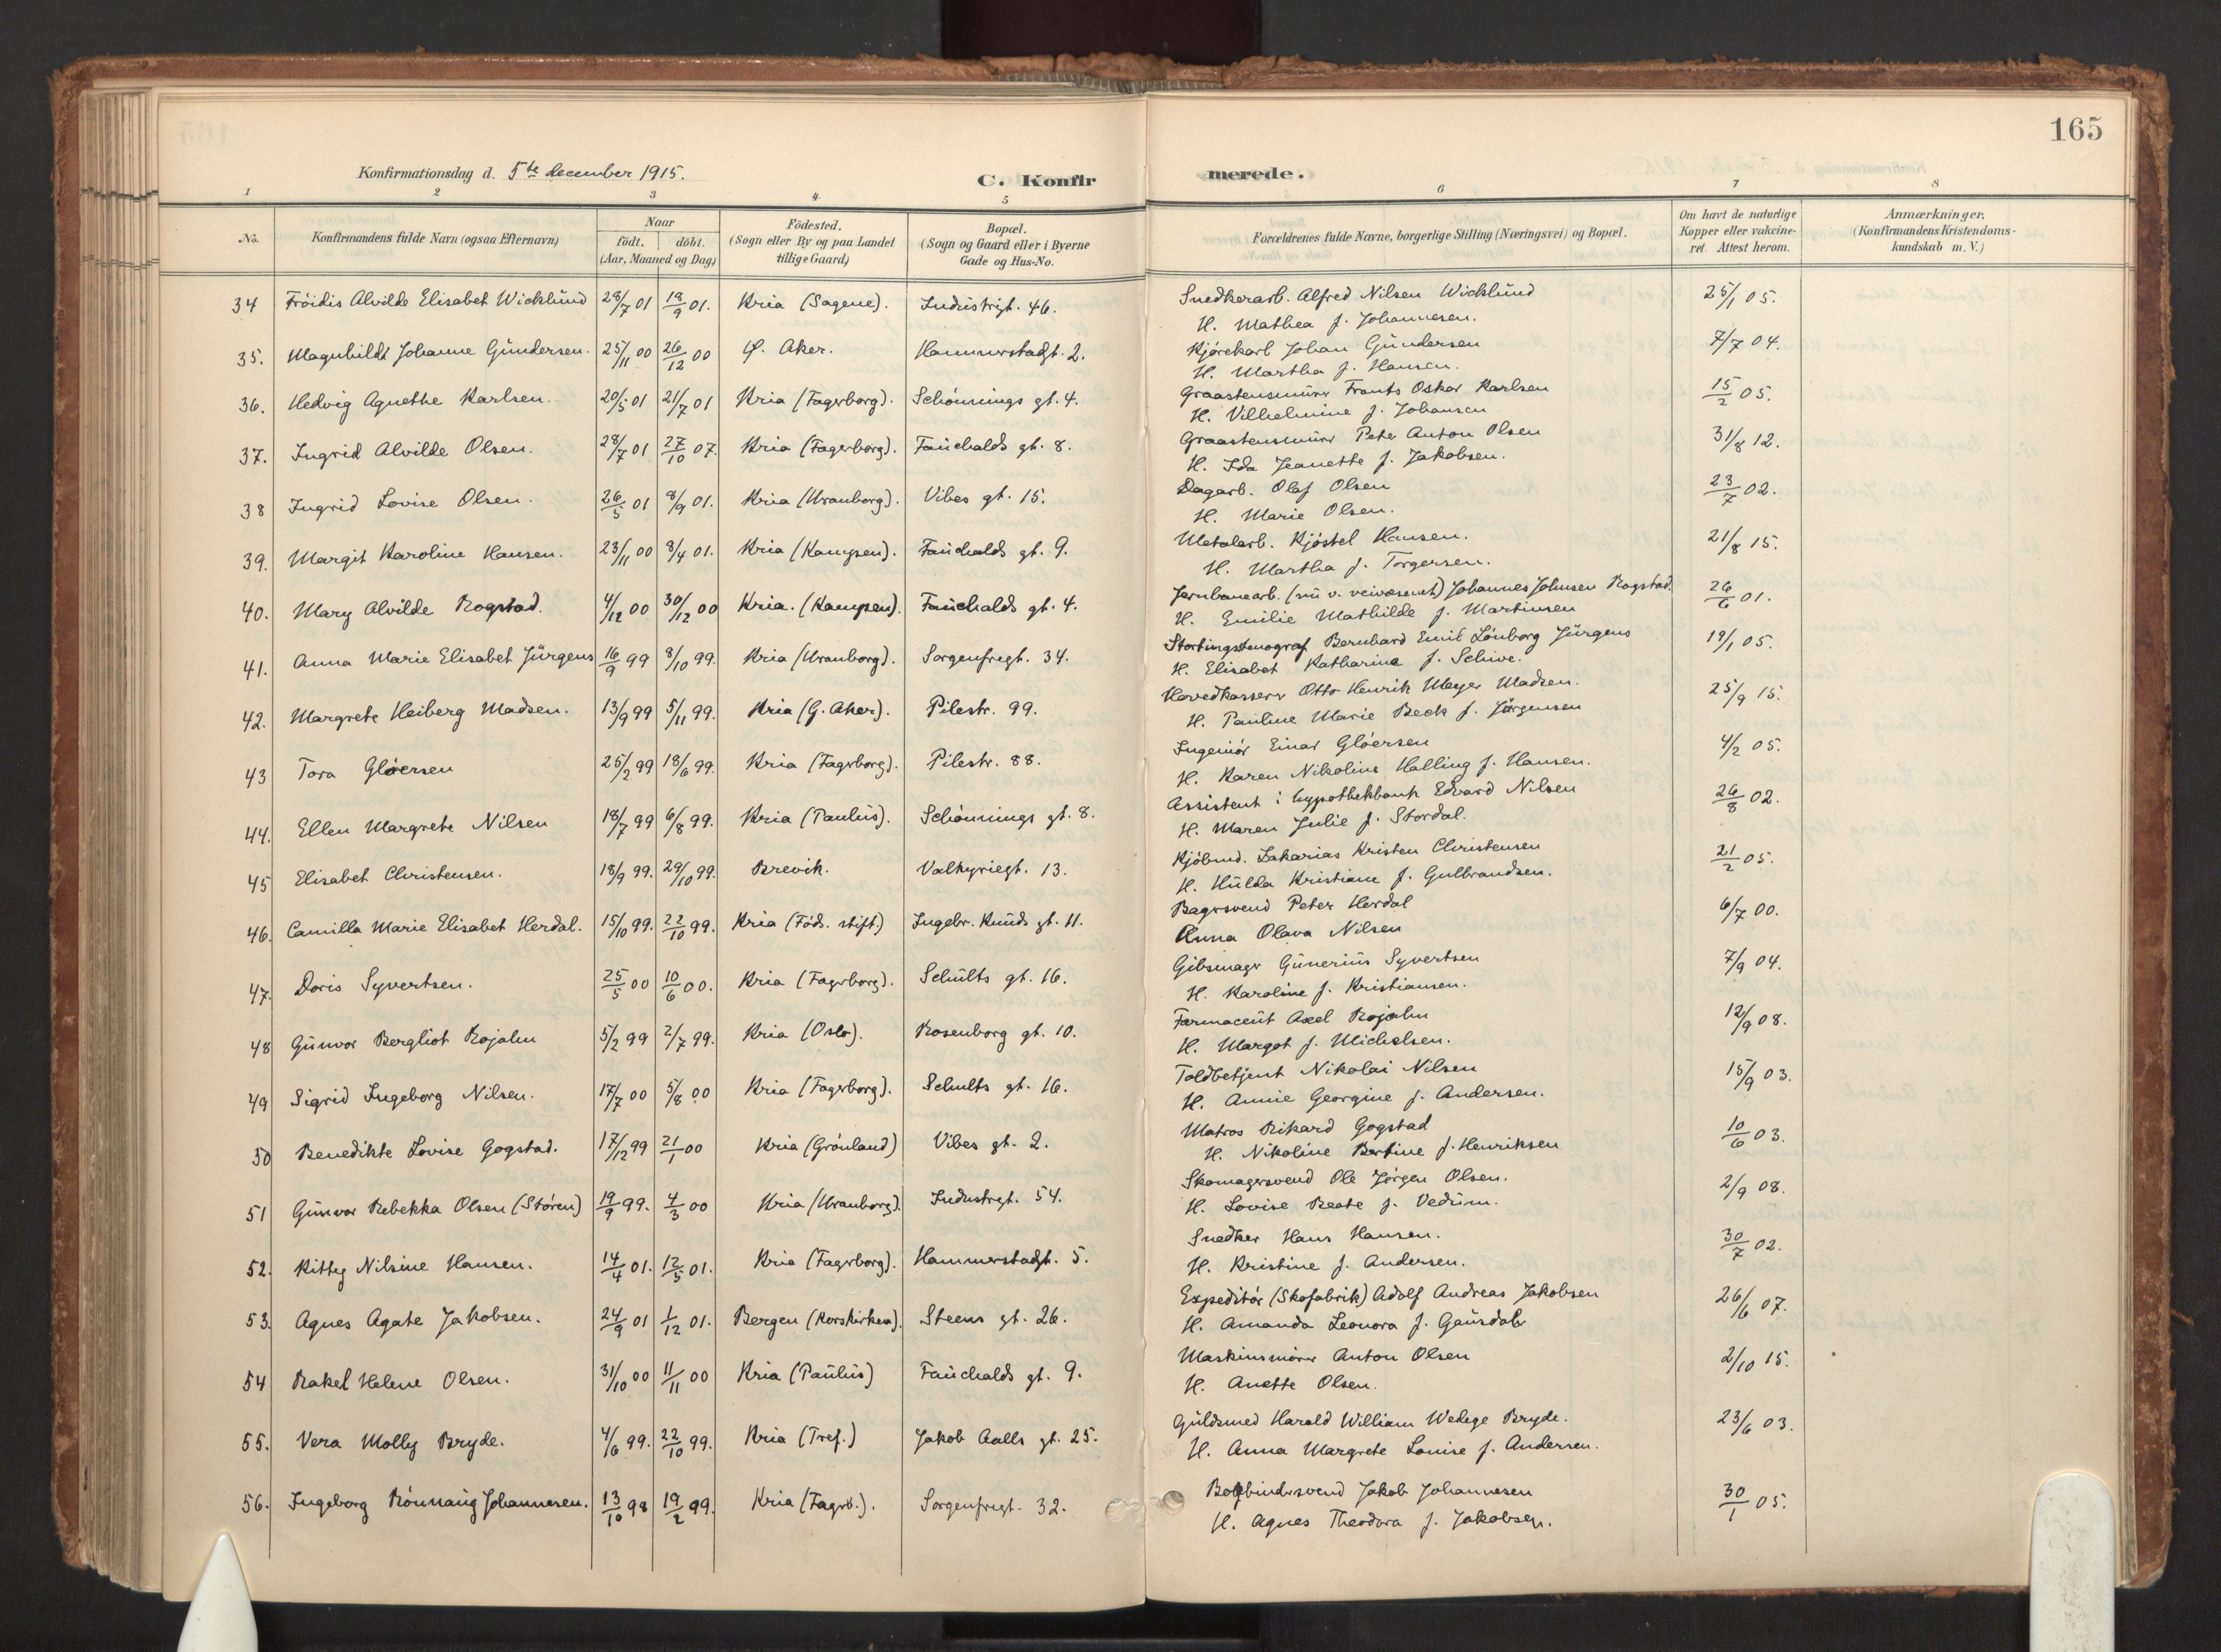 165
Konfirmationsdag d. 5te december 1915.
C. Konfirmerede.
1 2 3 4 5 6 7 8
No.
Konfirmandens fulde Navn (ogsaa Efternavn)
Naar
födt. döbt.
(Aar, Maaned og Dag)
Födested.
(Sogn eller By og paa Landet
tillige Gaard)
Bopæl.
(Sogn og Gaard eller i Byerne
Gade og Hus-No.
Forældrenes fulde Navne, borgerlige Stilling (Næringsvei) og Bopæl.
Om havt de naturlige
Kopper eller vakcine-
ret. Attest herom.
Anmærkninger.
(Konfirmandens Kristendoms-
kundskab m. V.)
34 Fröidis Alvilde Elisabet Wicklund 28/7 01 18/9 01. Kria (Sagene). Industrigt. 46. Snedkerarb. Alfred Nilsen Wicklund 25/1 05.
H. Mathea f. Johannesen.
35. Magnhildt Johanne Gundersen. 25/11 00 26/12 00 Ø. Aker. Hammerstadgt. 2. Kjørekarl Johan Gundersen 7/7 04.
H. Martha f. Hansen.
36. Hedvig Agnethe Karlsen. 20/5 01 21/7 01 Kria (Fagerborg). Schønnings gt. 4. Graastensmurer Frants Oskar Karlsen 15/2 05.
H. Vilhelmine f. Johansen
37. Ingrid Alvilde Olsen. 28/7 01 27/10 07. Kria (Fagerborg). Fauchalds gt. 8. Graastensmurer Peter Anton Olsen 31/8 12.
H. Ida Jeanette f. Jakobsen.
38 Ingrid Lovise Olsen. 26/5 01 8/9 01. Kria (Uranborg). Vibes gt. 15. Dagarb. Olaf Olsen 23/7 02.
H. Marie Olsen.
39. Margit Karoline Hansen. 23/11 00 8/4 01. Kria (Kampen). Fauchalds gt. 9. Metalarb. Kjøstel Hansen. 21/8 15.
H. Martha f. Torgersen.
40. Mary Alvilde Rogstad. 4/12 00 30/12 00 Kria. (Kampen). Fauchalds gt. 4. Jernbanearb. (nu v. veivæsenet) Johannes Johnsen Rogstad. 26/6 01.
H. Emilie Mathilde f. Martinsen
41. Anna Marie Elisabet Jürgens 16/9 99 8/10 99. Kria (Uranborg). Sorgenfrigt. 34. Stortingstenograf Bernhard Emil Lönborg Jürgens 19/1 05.
H. Elisabet Katharina f. Schive.
42. Margrete Heiberg Madsen. 13/9 99 5/11 99. Kria (G. Aker). Pilestr. 99. Hovedkasserer Otto Henrik Meyer Madsen. 25/9 15.
H. Pauline Marie Beck f. Jørgensen
43 Tora Glöersen 25/2 99 18/6 99. Kria (Fagerborg). Pilestr. 88. Ingeniör Einar Glöersen 4/2 05.
H. Karen Nikoline Halling f. Hansen.
44. Ellen Margrete Nilsen 18/7 99 6/8 99. Kria (Paulus). Schønnings gt. 8. Assistent i hypothekbank Edvard Nilsen 26/8 02.
H. Maren Julie f. Stordal.
45 Elisabet Christensen. 18/9 99. 29/10 99. Brevik. Valkyriegt. 13. Kjöbmd. Zakarias Kristen Christensen 21/2 05.
H. Hulda Kristiane f. Gulbrandsen.
46. Camilla Marie Elisabet Herdal. 15/10 99. 22/10 99. Kria (Föds. stift.) Ingebr. Knuds gt. 11. Bagersvend Peter Herdal 6/7 00.
Anna Olava Nilsen
47. Doris Syvertsen. 25/5 00 10/6 00. Kria (Fagerborg). Schults gt. 16. Gibsmager Gunerius Syvertsen 7/9 04.
H. Karoline f. Kristiansen.
48 Gunvor Bergliot Rojahn 5/2 99 2/7 99. Kria (Oslo). Rosenborg gt. 10. Farmaceut Axel Rojahn 12/9 08.
H. Margot f. Michelsen.
49 Sigrid Ingeborg Nilsen. 17/7 00 5/8 00 Kria (Fagerborg). Schults gt. 16. Toldbetjent Nikolai Nilsen 15/9 03.
H. Annie Georgine f. Andersen.
50 Benedikte Lovise Gogstad. 17/12 99 21/1 00 Kria (Grönland) Vibes gt. 2. Matros Rikard Gogstad 10/6 03.
H. Nikoline Bertine f. Henriksen
51 Gunvor Rebekka Olsen (Støren) 19/9 99. 4/3 00 Kria (Uranborg). Industrigt. 54. Skomagersvend Ole Jørgen Olsen. 2/9 08.
H. Lovise Beate f. Vedum.
52. Kitty Nilsine Hansen. 14/4 01. 12/5 01. Kria (Fagerborg). Hammerstadgt. 5. Snedker Hans Hansen. 30/7 02.
H. Kristine f. Andersen.
53. Agnes Agate Jakobsen. 24/9 01 1/12 01. Bergen (Korskirken). Steens gt. 26. Expeditör (Skofabrik) Adolf Andreas Jakobsen 26/6 07.
H. Amanda Leonora f. Gausdal
54 Rakel Helene Olsen. 31/10 00 11/11 00 Kria (Paulus) Fauchalds gt. 9. Maskinsmører Anton Olsen 2/10 15.
H. Anette Olsen.
55. Vera Molly Bryde. 4/6 99. 22/10 99. Kria (Tref.) Jakob Aalls gt. 25. Guldsmed Harald William Wedege Bryde. 23/6 03.
H. Anna Margrete Louise f. Andersen.
56. Ingeborg Rönnaug Johannesen. 13/10 98 19/2 99. Kria (Fagerb.). Sorgenfrigt. 32. Bogbindersvend Jakob Johannesen 30/1 05.
H. Agnes Theodora f. Jakobsen.